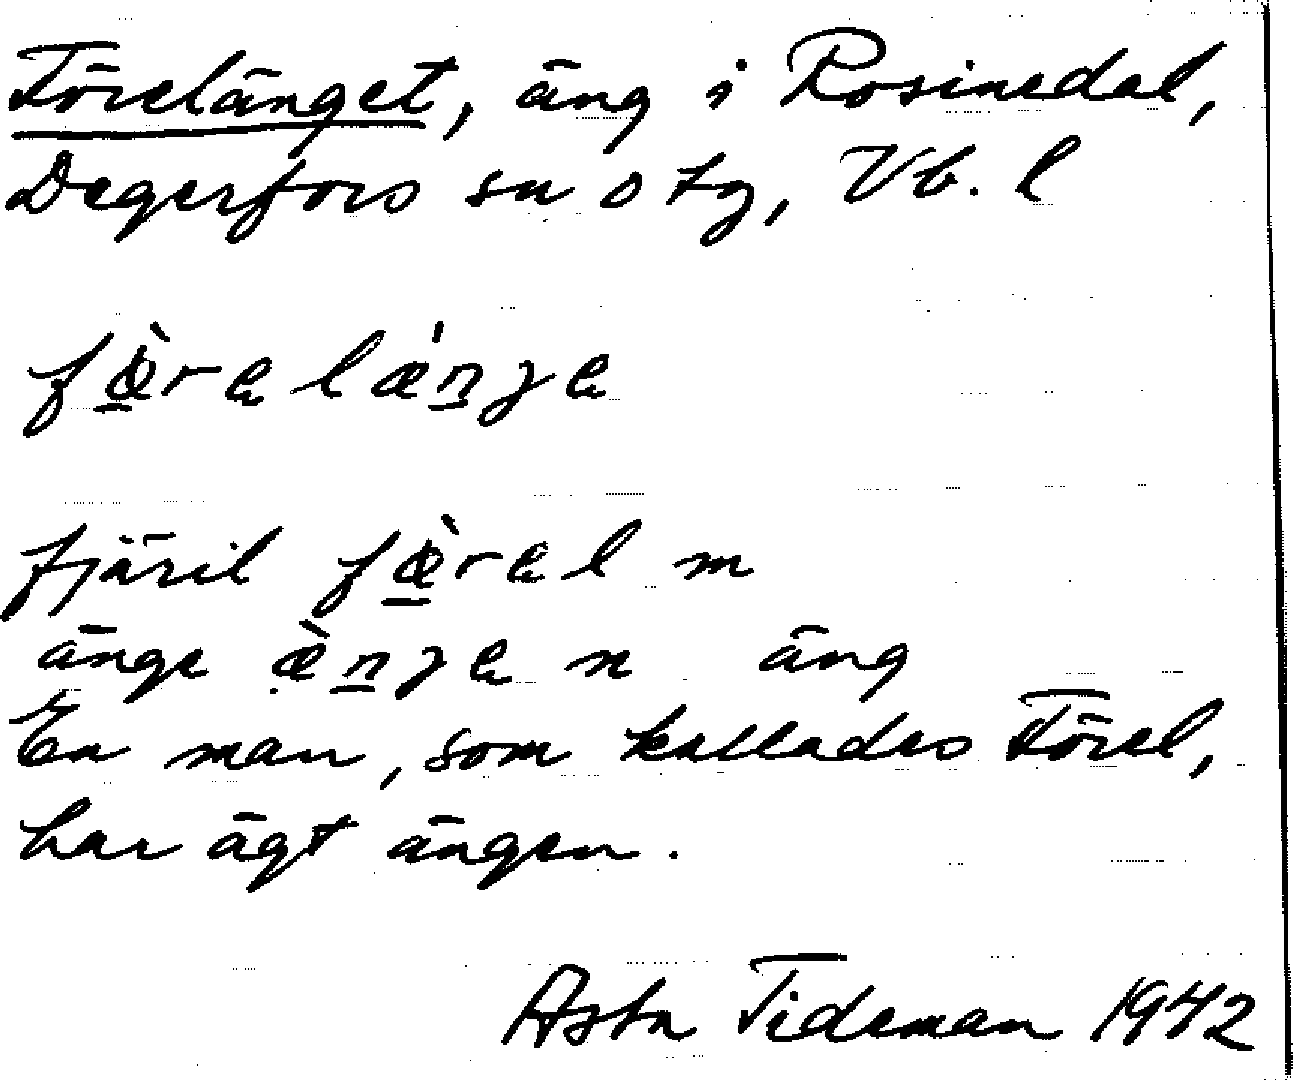 Förelänget, äng i Rosinedal,
Degerfors sn o tg, Vb. l
fæ̀relænʒe
fjäril fæ̀rel m
änge æ̀nʒe n äng
En man, som kallades Förel,
har ägt ängen.
Asta Tideman 1942